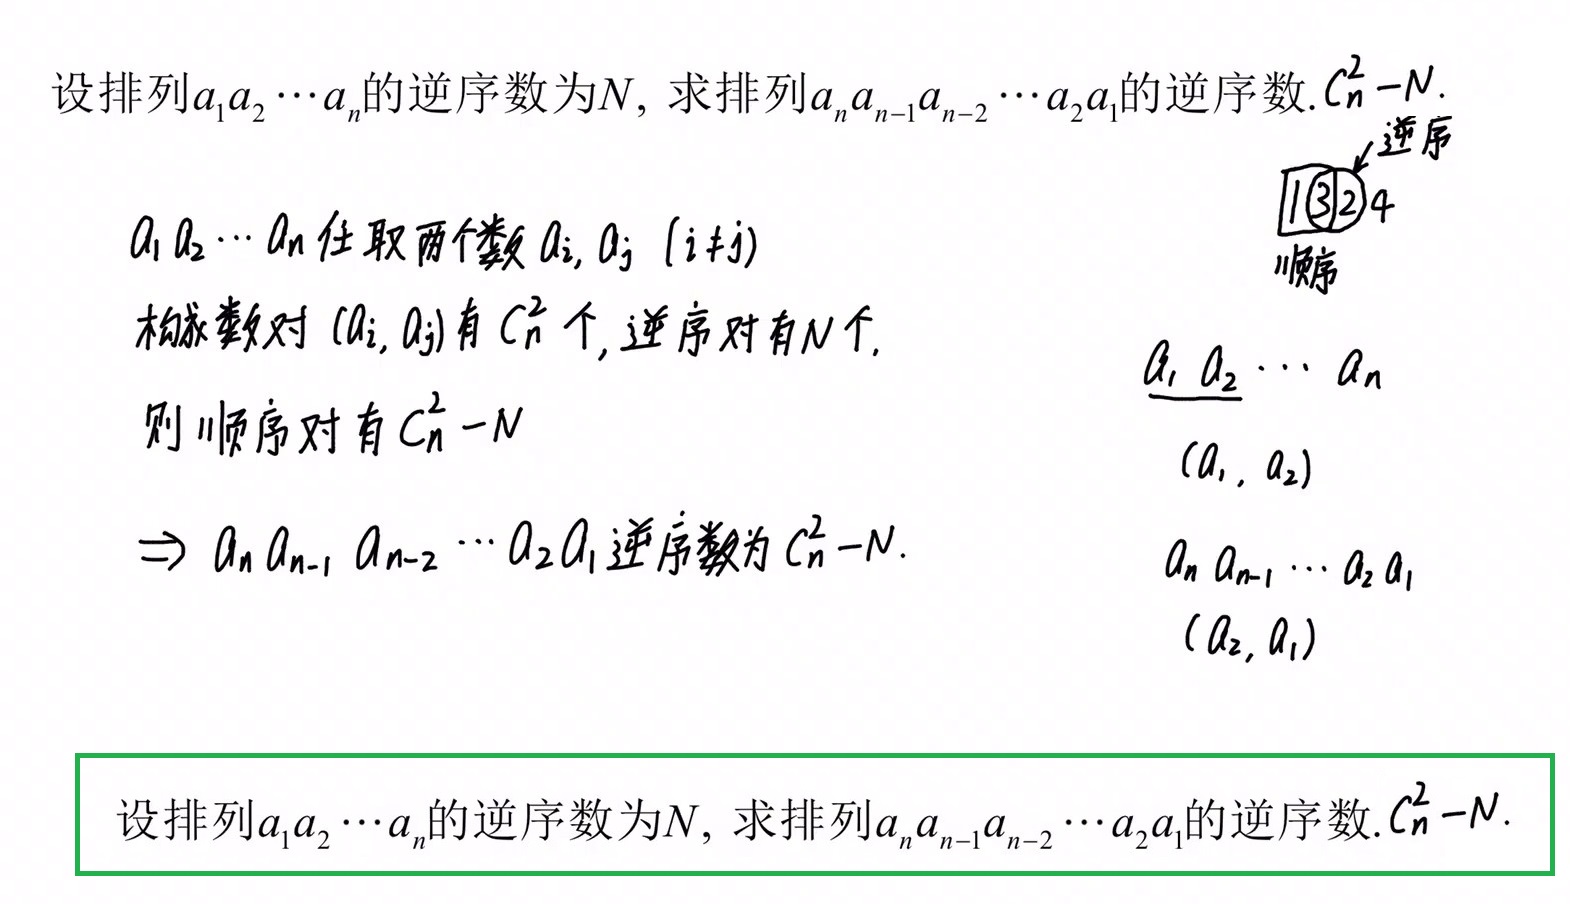 设排列a₁a₂⋯aₙ的逆序数为N, 求排列aₙaₙ₋₁aₙ₋₂⋯a₂a₁的逆序数. Cₙ²-N.
逆序
1 3 2 4
顺序
a₁ a₂ ⋯ aₙ 任取两个数 aᵢ, aⱼ (i≠j)
构成数对 (aᵢ, aⱼ) 有 Cₙ² 个, 逆序对有N个.
则顺序对有 Cₙ²-N
⇒ aₙ aₙ₋₁ aₙ₋₂ ⋯ a₂ a₁ 逆序数为 Cₙ²-N.
a₁ a₂ ⋯ aₙ
(a₁, a₂)
aₙ aₙ₋₁ ⋯ a₂ a₁
(a₂, a₁)
设排列a₁a₂⋯aₙ的逆序数为N, 求排列aₙaₙ₋₁aₙ₋₂⋯a₂a₁的逆序数. Cₙ²-N.